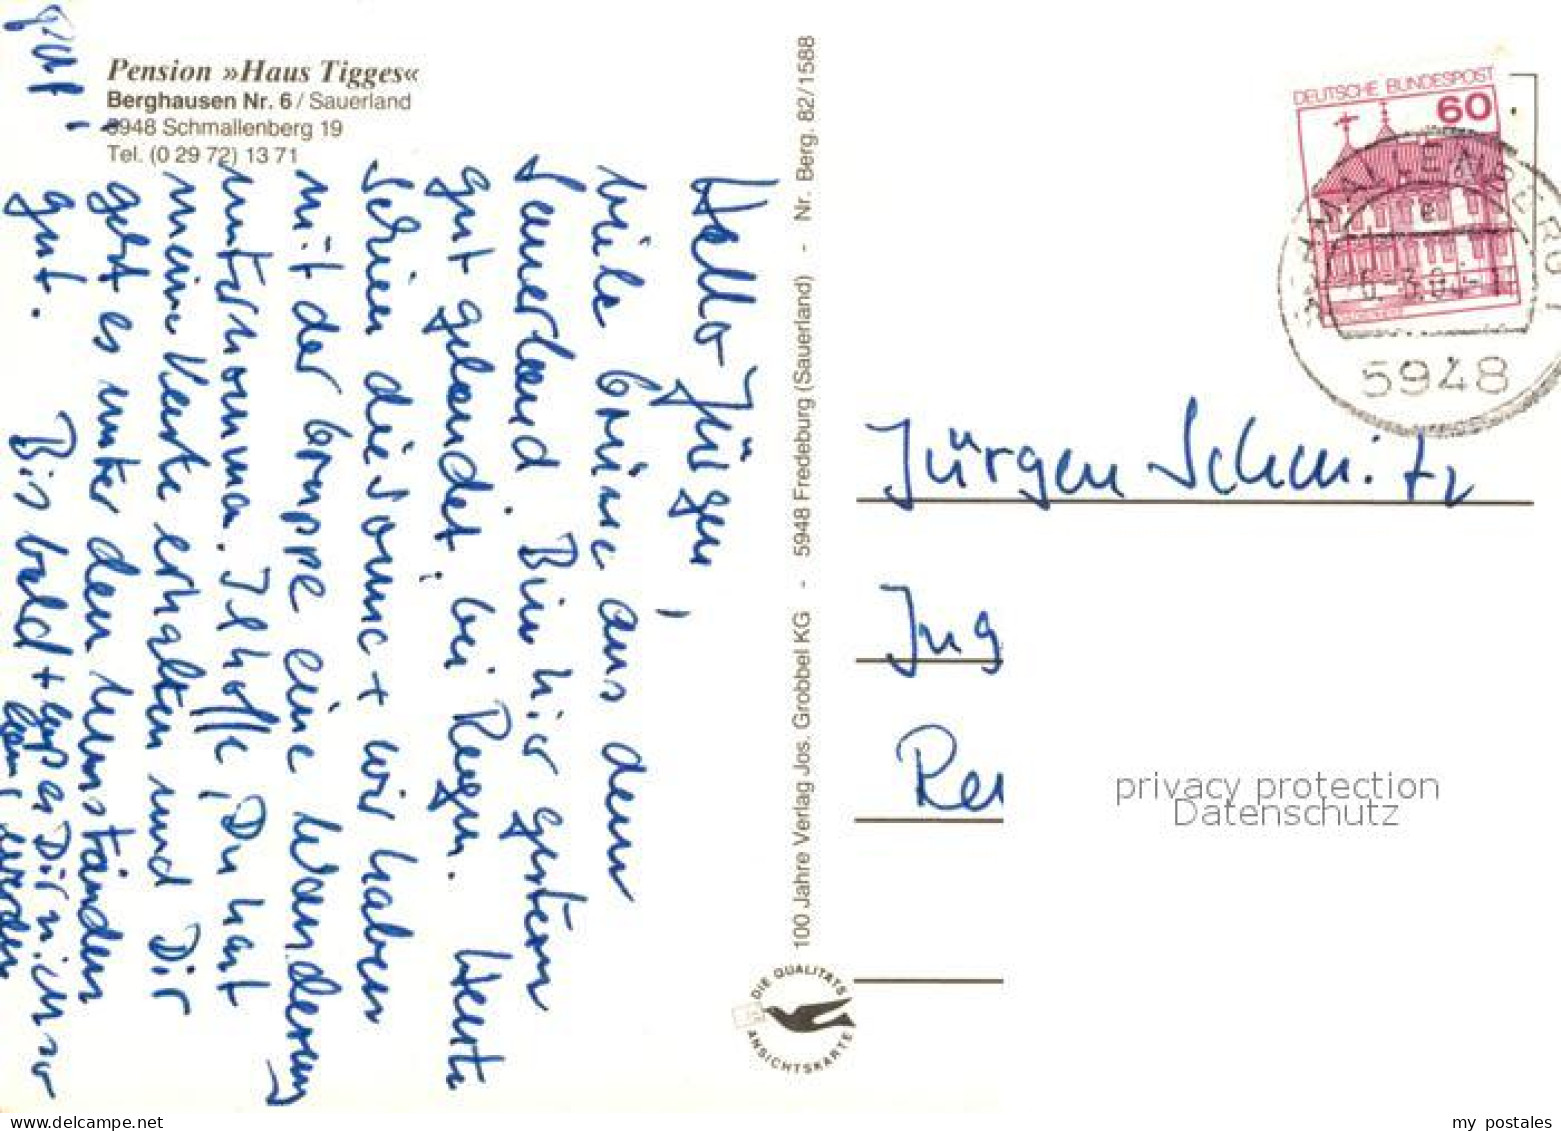 Pension »Haus Tigges«
Berghausen Nr. 6 / Sauerland
5948 Schmallenberg 19
Tel. (0 29 72) 13 71
Hallo Jürgen,
viele Grüße aus dem
Sauerland. Bin hier gestern
gut gelandet, bei Regen. Heute
schien die Sonne + wir haben
mit der Gruppe eine Wanderung
unternommen. Ich hoffe, Du hast
meine Karte erhalten und Dir
geht es unter den Umständen
gut. Bis bald + laß es Dir nicht so
lang werden
100 Jahre Verlag Jos. Grobbel KG - 5948 Fredeburg (Sauerland) - Nr. Berg. 82/1588
DIE QUALITÄTS
ANSICHTSKARTE
DEUTSCHE BUNDESPOST
60
SCHMALLENBERG 1
e
5948
Jürgen Schmitz
Jug
Rei
privacy protection
Datenschutz
www.delcampe.net
my_postales